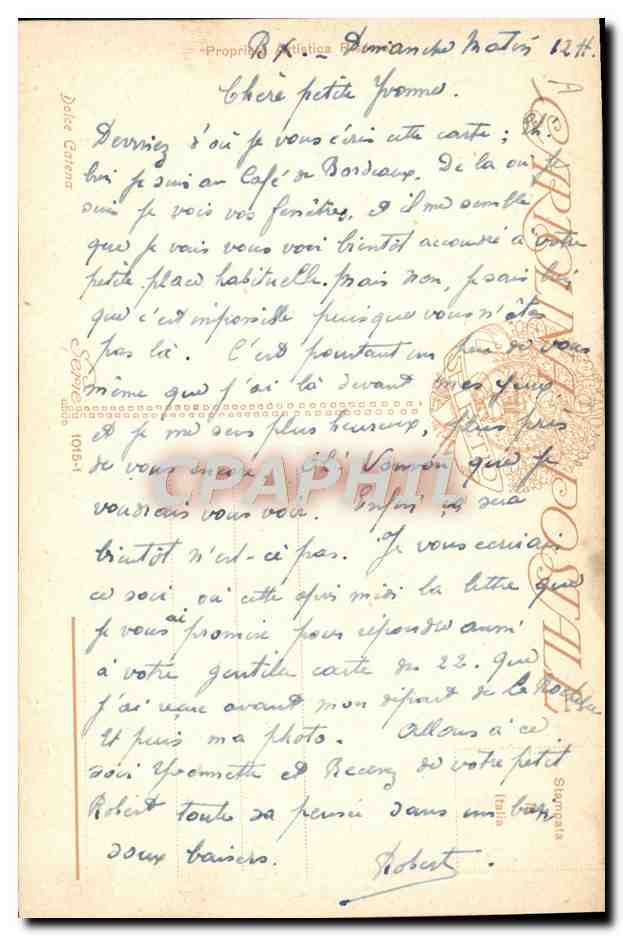 Bx. - Dimanche Matin 12 H.
Chère petite Yvonne.
Devinez d'où je vous écris cette carte ; Eh !
bien je suis au Café de Bordeaux. De là où je
suis je vois vos fenêtres, et il me semble
que je vais vous voir bientôt accoudée à votre
petite place habituelle. Mais non, je sais bien
que c'est impossible puisque vous n'êtes
pas là. C'est pourtant un peu de vous
même que j'ai là devant mes yeux
et je me sens plus heureux, plus près
de vous encore. Oh ! que je
voudrais vous voir. Enfin ce sera
bientôt n'est-ce pas. Je vous écrirai
ce soir ou cette après midi la lettre que
je vous ai promise pour répondre aussi
à votre gentille carte du 22. que
j'ai reçue avant mon départ de la
Et puis ma photo. Allons à ce
soir Yvonnette et Recevez de votre petit
Robert toute sa pensée dans un bon
doux baisers.
Robert
Proprietà Artistica
Dolce Catena
Serie 1015-1
CARTOLINA POSTALE
Stampata
Italia
CPAPHIL